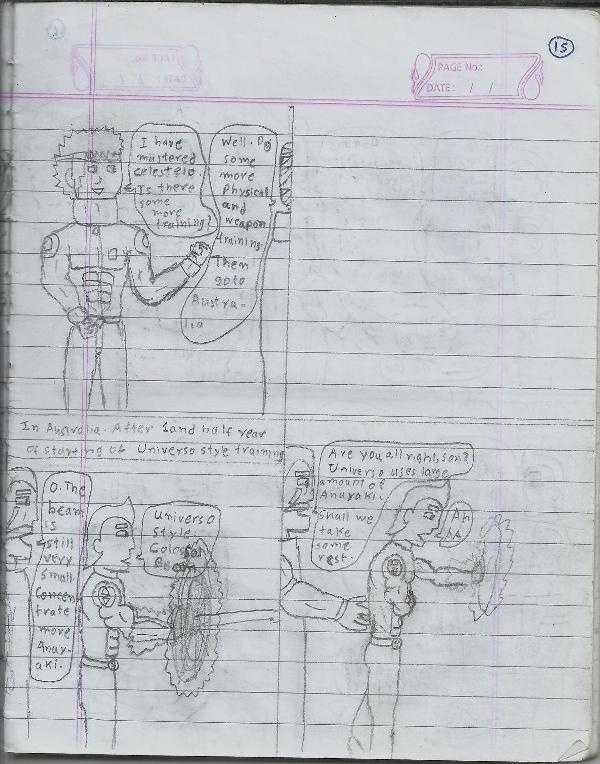 15
PAGE No.:
DATE: / /
I have
mastered
celestelo.
Is there
some
more
training?
Well. Do
some
more
Physical
and
weapon
training.
Then
go to
Austra-
lia
In Australia. After 1 and half year
of starting of Universo style training
O. The
beam
is
still
very
small
Concen-
trate
more
Anay-
aki.
Universo
Style
Colossal
Beam
Are you all right, son?
Universo uses large
amount of
Anayaki.
Shall we
take
some
rest.
Ah